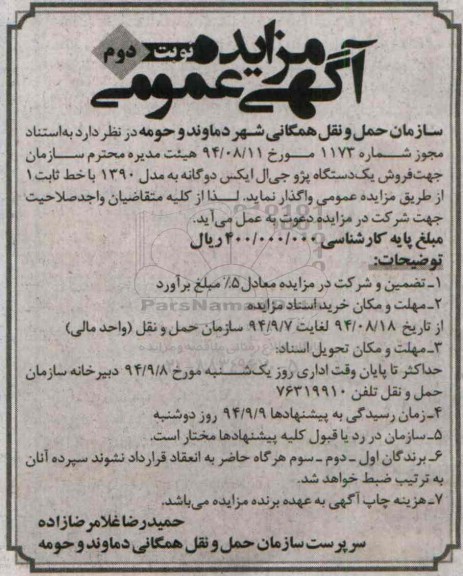 آگهی مزایده عمومی
نوبت دوم
سازمان حمل و نقل همگانی شهر دماوند و حومه در نظر دارد به استناد
مجوز شماره ۱۱۷۳ مورخ ۹۴/۰۸/۱۱ هیئت مدیره محترم سازمان
جهت فروش یک دستگاه پژو جی ال ایکس دوگانه به مدل ۱۳۹۰ با خط ثابت ۱
از طریق مزایده عمومی واگذار نماید. لذا از کلیه متقاضیان واجد صلاحیت
جهت شرکت در مزایده دعوت به عمل می آید.
مبلغ پایه کارشناسی ۴۰۰/۰۰۰/۰۰۰ ریال
توضیحات:
۱ـ تضمین و شرکت در مزایده معادل ۵٪ مبلغ برآورد
۲ـ مهلت و مکان خرید اسناد مزایده
از تاریخ ۹۴/۰۸/۱۸ لغایت ۹۴/۹/۷ سازمان حمل و نقل (واحد مالی)
۳ـ مهلت و مکان تحویل اسناد:
حداکثر تا پایان وقت اداری روز یک شنبه مورخ ۹۴/۹/۸ دبیرخانه سازمان
حمل و نقل تلفن ۷۶۳۱۹۹۱۰
۴ـ زمان رسیدگی به پیشنهادها ۹۴/۹/۹ روز دوشنبه
۵ـ سازمان در رد یا قبول کلیه پیشنهادها مختار است.
۶ـ برندگان اول ـ دوم ـ سوم هرگاه حاضر به انعقاد قرارداد نشوند سپرده آنان
به ترتیب ضبط خواهد شد.
۷ـ هزینه چاپ آگهی به عهده برنده مزایده می باشد.
حمیدرضا غلامرضازاده
سرپرست سازمان حمل و نقل همگانی دماوند و حومه